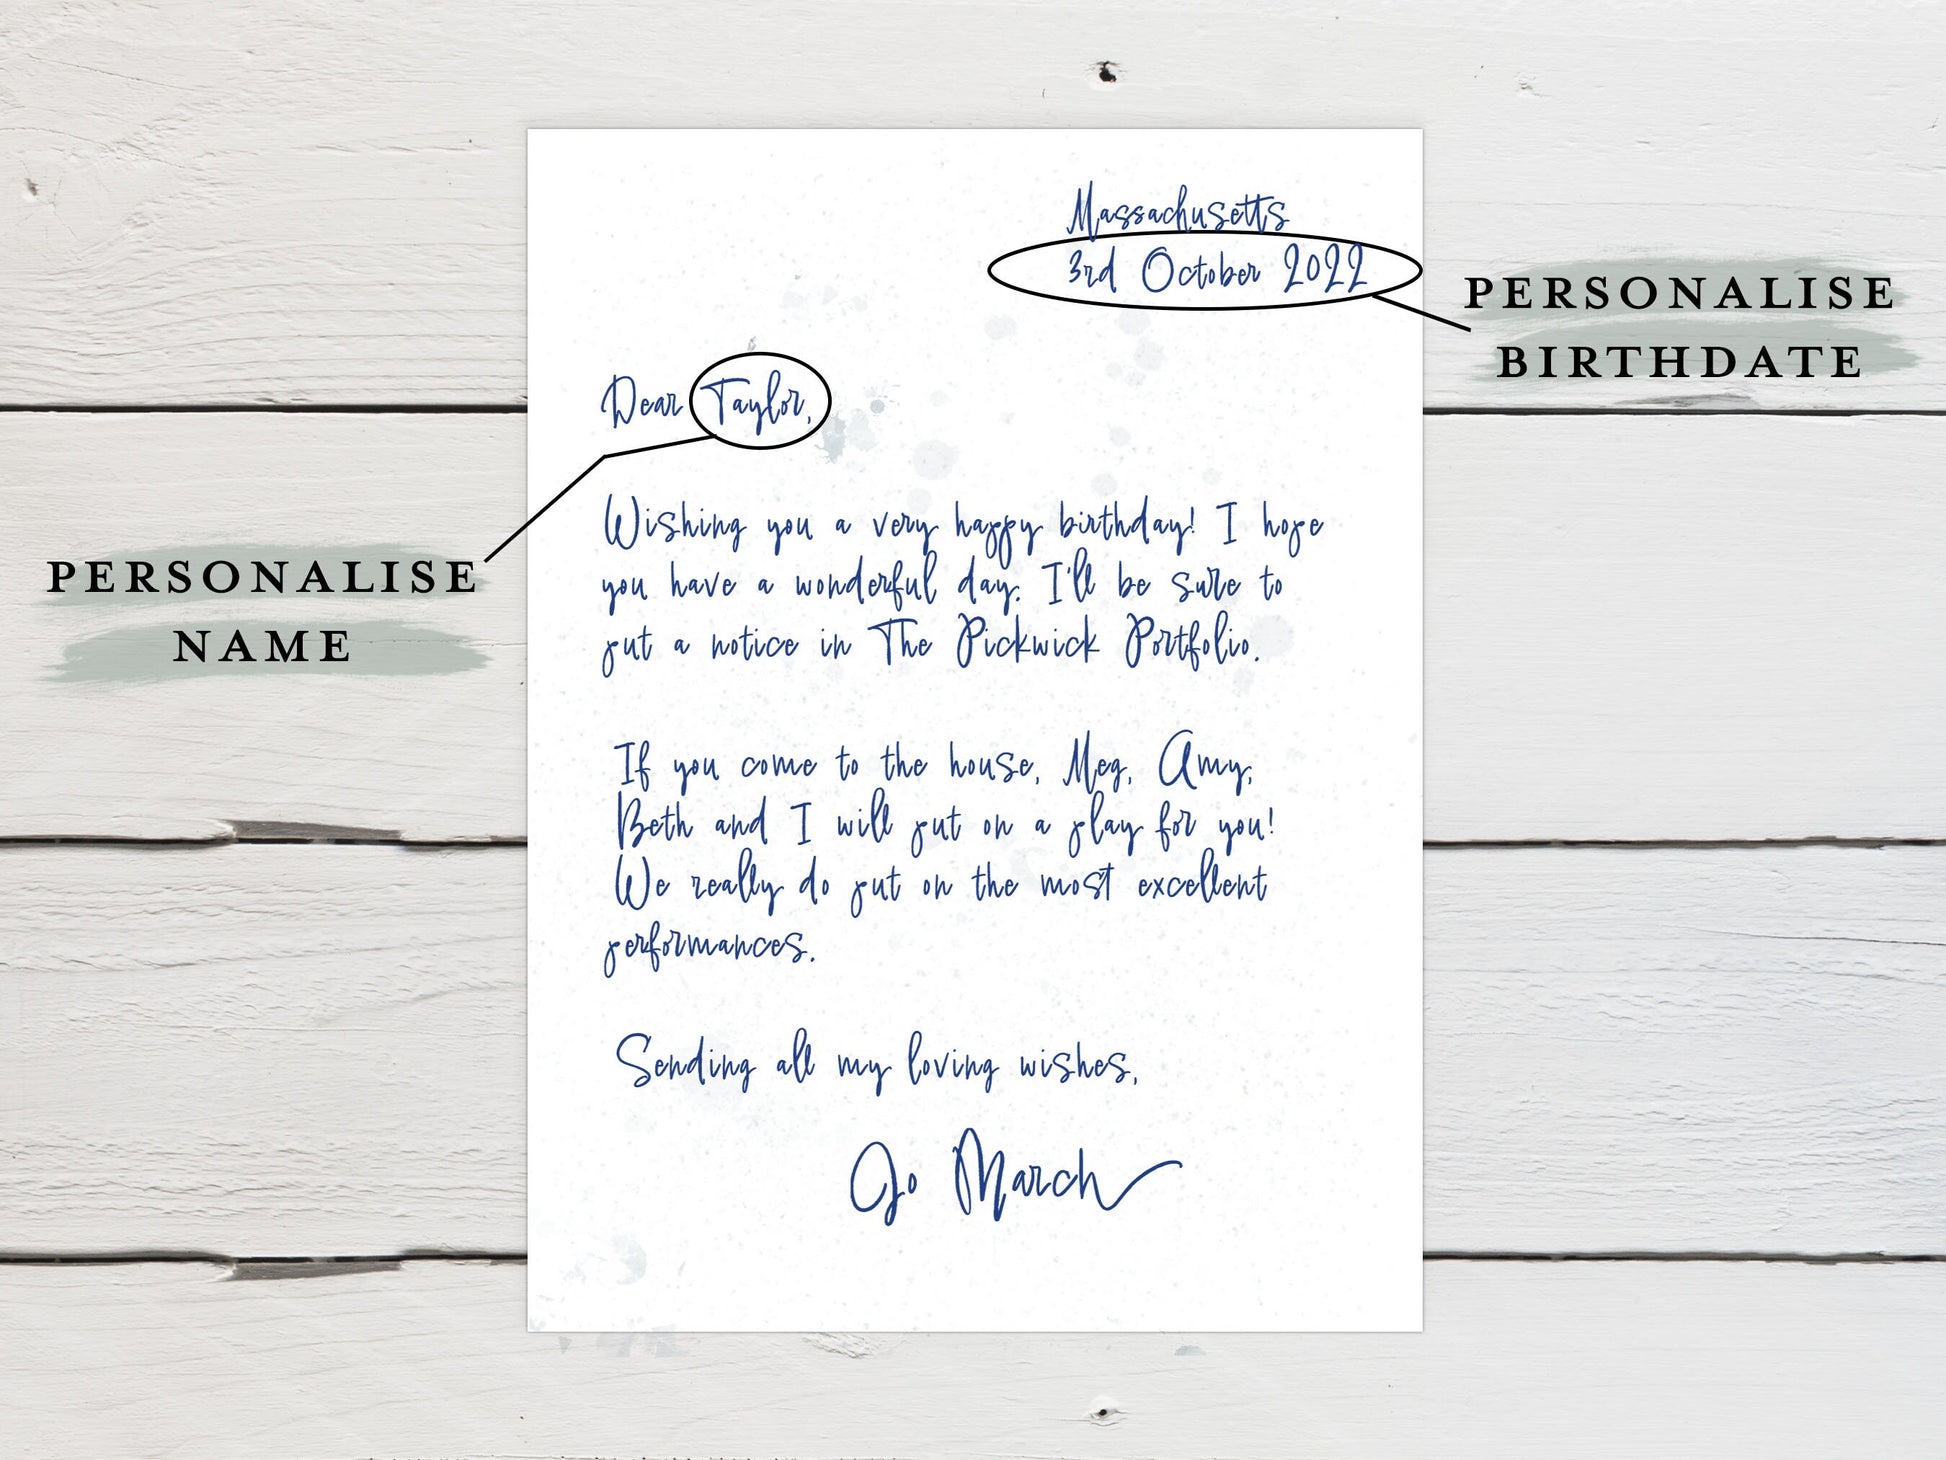 Massachusetts
3rd October 2022
PERSONALISE
BIRTHDATE
Dear Taylor,
PERSONALISE
NAME
Wishing you a very happy birthday! I hope
you have a wonderful day. I'll be sure to
put a notice in The Pickwick Portfolio.
If you come to the house, Meg, Amy,
Beth and I will put on a play for you!
We really do put on the most excellent
performances.
Sending all my loving wishes,
Jo March